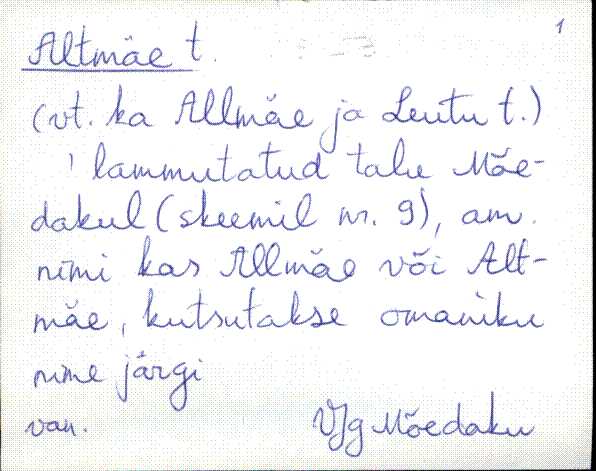 1
Altmäe t.
(vt. ka Allmäe ja Leutu t.)
lammutatud talu Mõe-
dakul (skeemil nr. 9), am.
nimi kas Allmäe või Alt-
mäe, kutsutakse omaniku
nime järgi
van. VJg Mõedaku